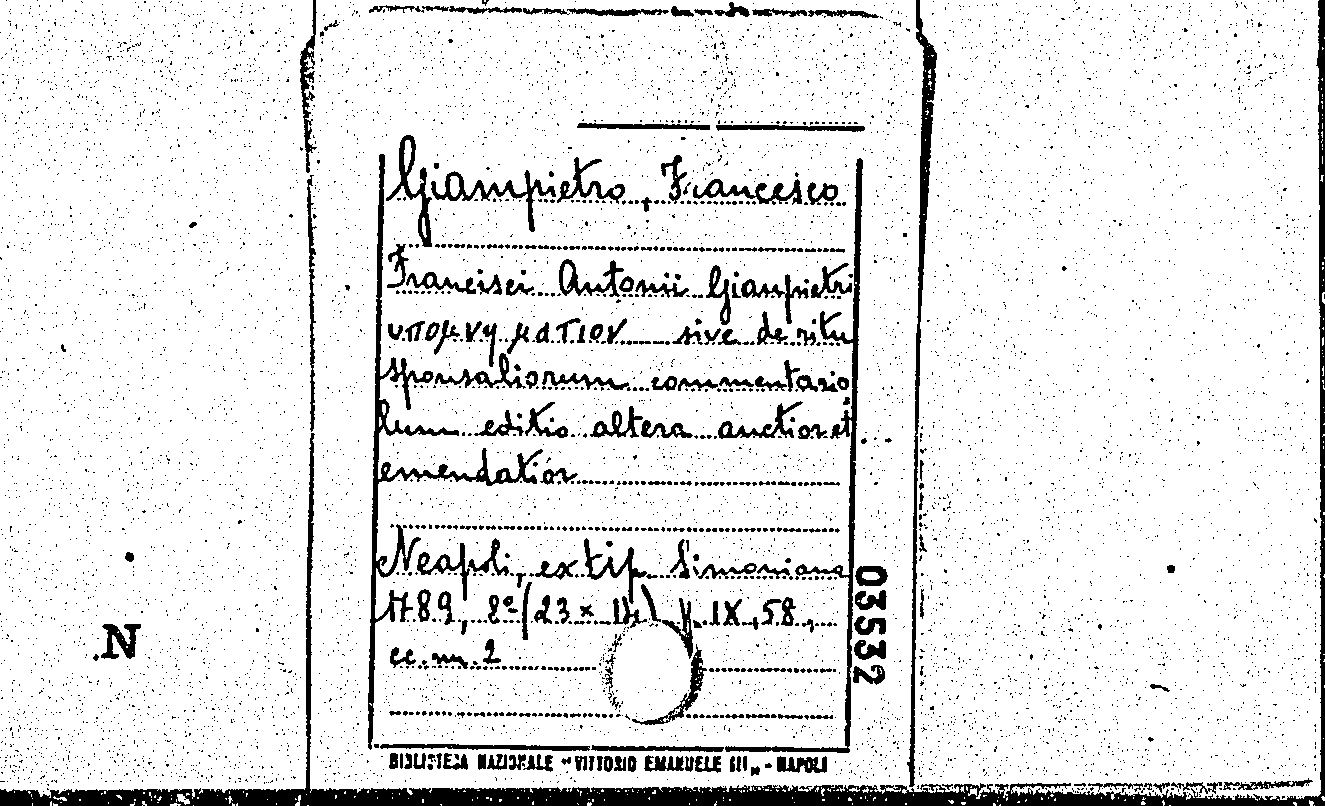 Giampietro, Francesco
Francisci Antonii Gianpietri
υπομνηματιον sive de ritu
sponsaliorum commentario
lum editio altera auctior et
emendatior
Neapoli, ex tip. Simoniana
1789, 8º (23 × 14) p. IX, 58,
cc. nn. 2
03532
N
BIBLIOTECA NAZIONALE "VITTORIO EMANUELE III„ - NAPOLI